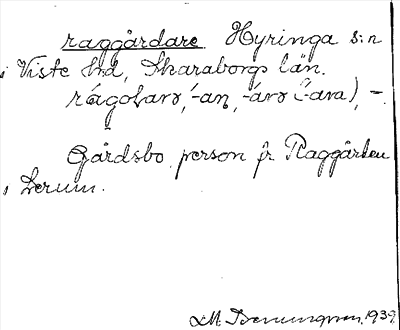 raggårdare Hyringa s:n
i Viste hrd, Skaraborgs län.
rágoɫarə, -an, -árə (-ara), -.
Gårdsbo, person fr. Raggården
i Lerum.
1939